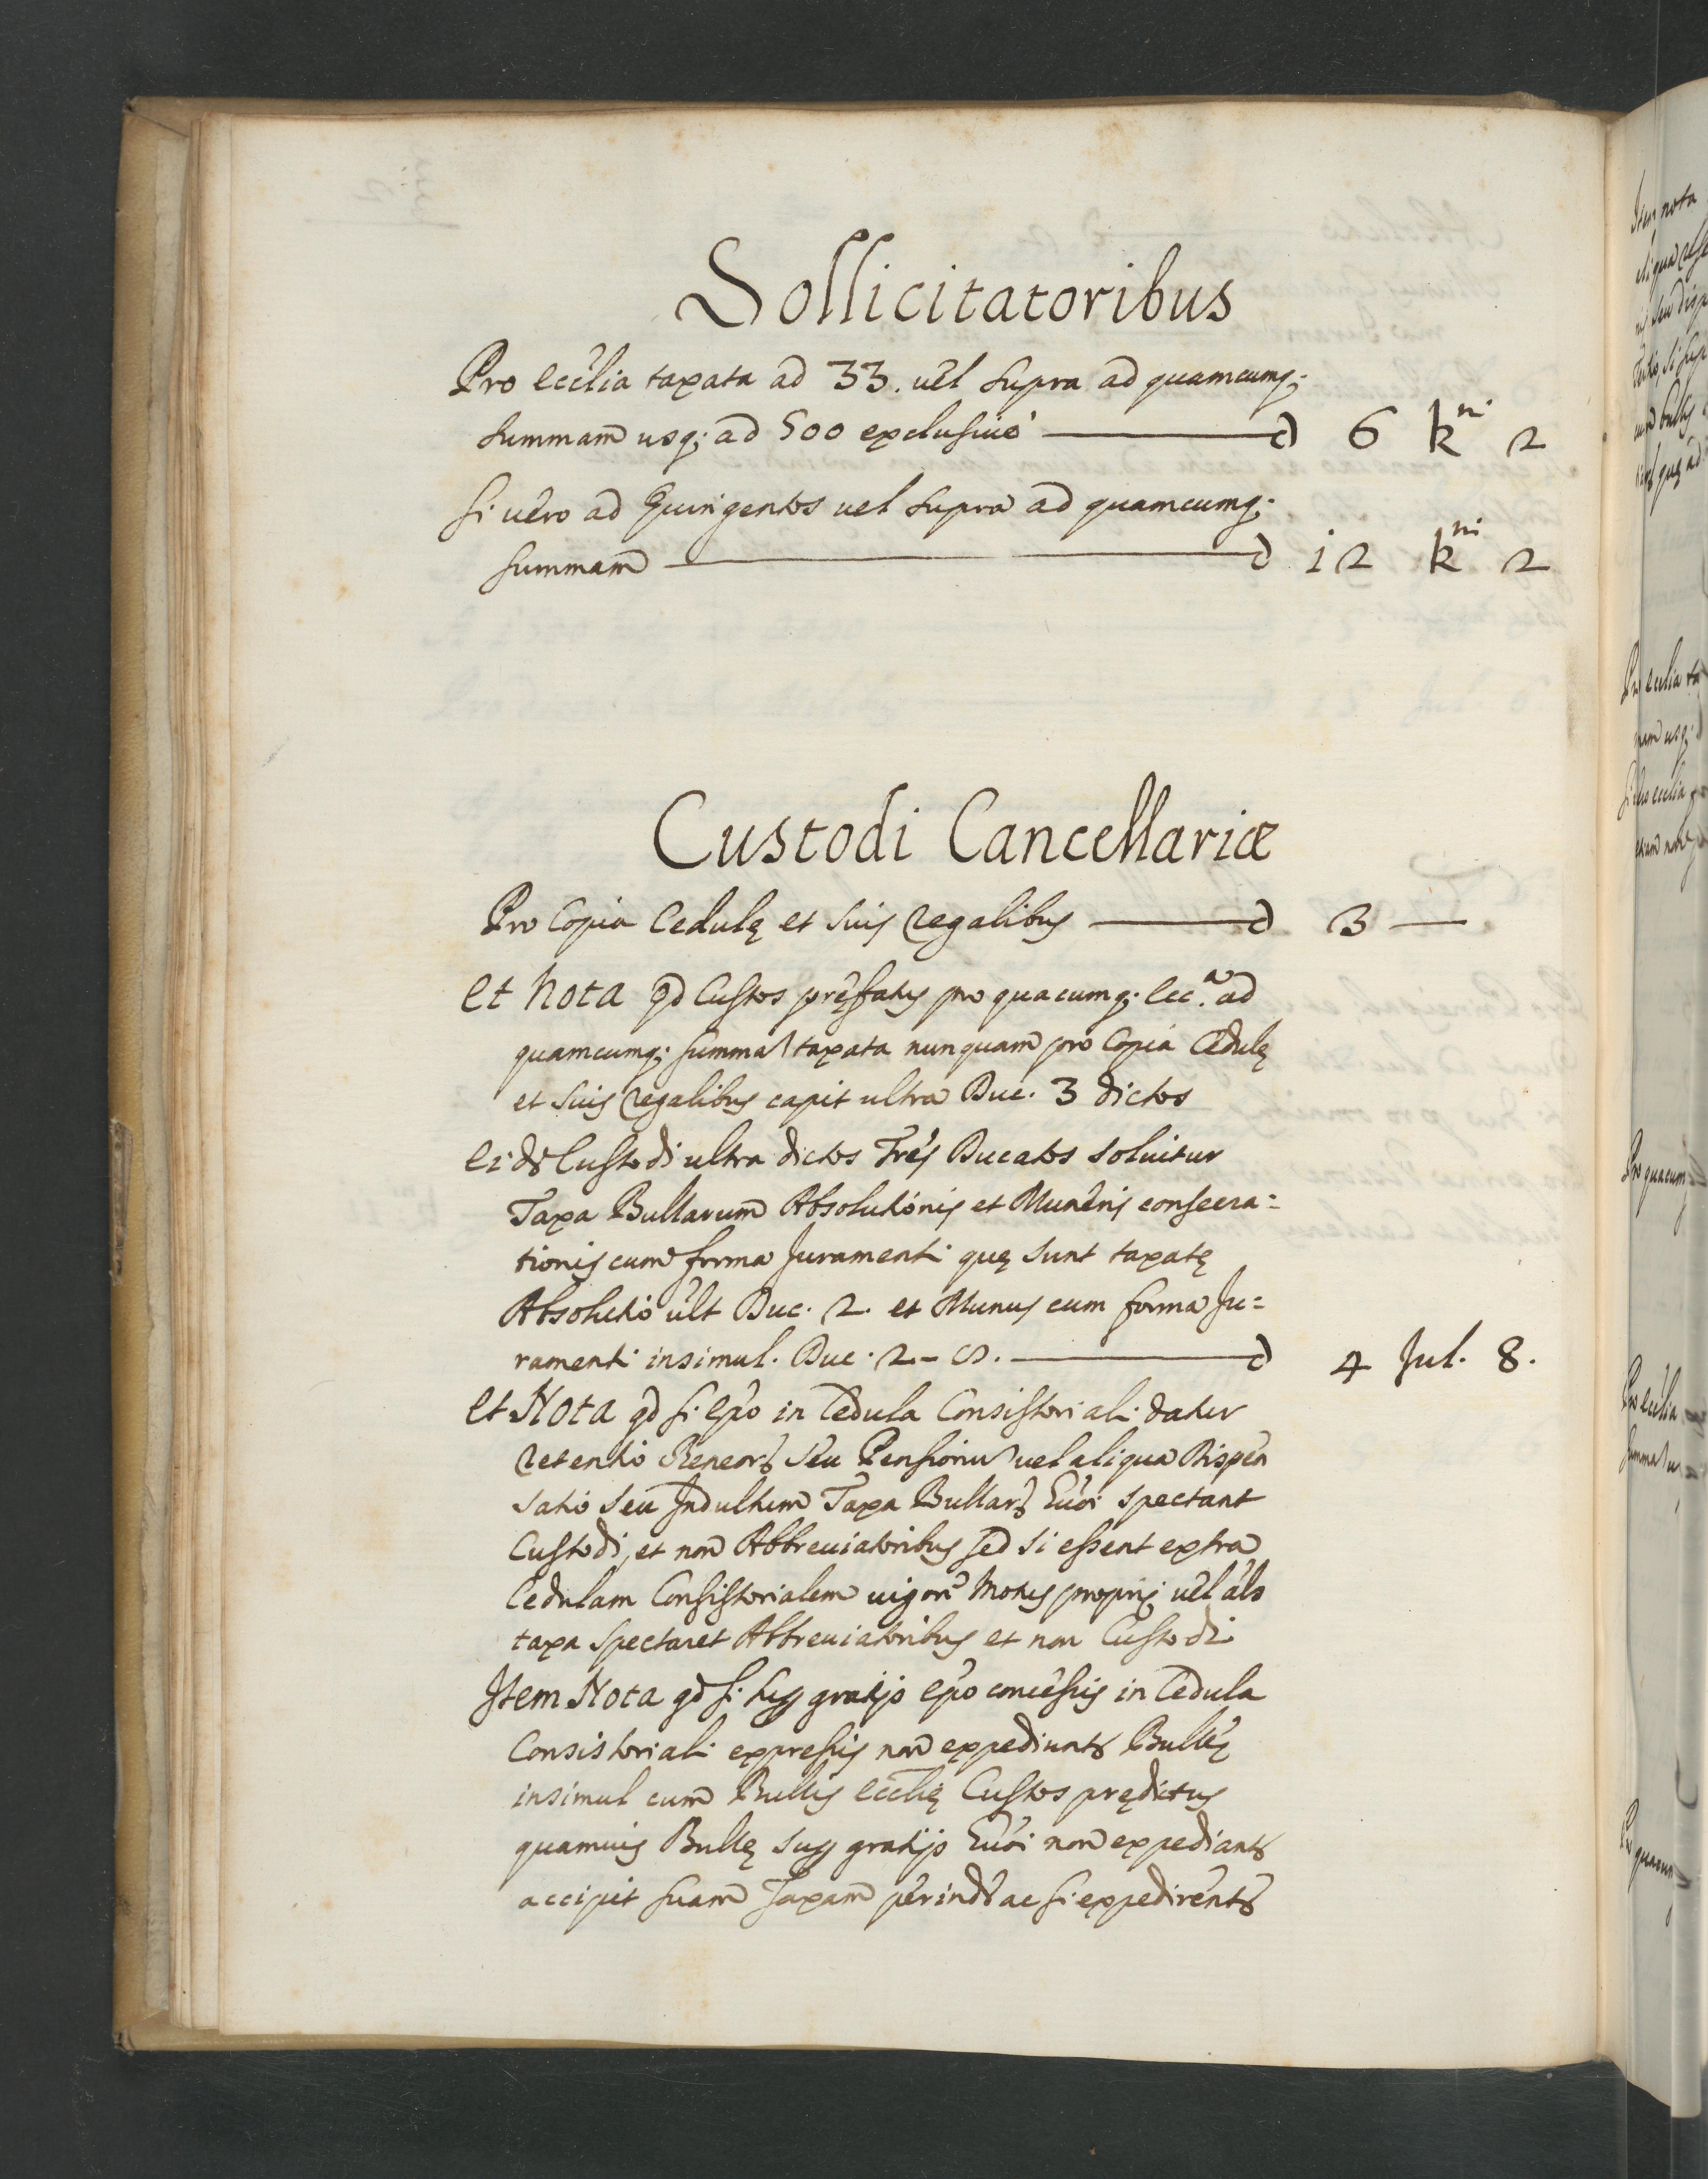 Sollicitatoribus
Pro eccĺia taxata ad 33. uel supra ad quamcumq;
summam usq; ad 500 exclusiuè — d 6 k^ni 2
si uero ad Quingentos uel supra ad quamcumq;
summam — d 12 k^ni 2
Custodi Cancellariæ
Pro Copia Cedulę et suis regalibus — d 3 —
Et Nota qd Custos prefatus pro quacumq; Ecc.a ad
quamcumq; summa taxata nunquam pro Copia Cedulę
et suis regalibus capit ultra Duc. 3 dictos
Ei dē Custodi ultra dictos Tres Ducatos soluitur
Taxa Bullarum Absolutionis et Muneris consecra=
tionis cum forma Juramenti quę sunt taxatę
Absolutio ult Duc. 2. et Munus cum forma Ju=
ramenti insimul. Duc. 2 - — d 4 Jul. 8.
Et Nota qd si epo in Cedula Consistoriali datur
retentio seu Pensionu uel aliqua Dispen
satio seu Indultum Taxa Bullar spectant
Custodi, et non Abbreuiatoribus sed si essent extra
Cedulam Consistorialem uigore Motus proprij uel als
taxa spectaret Abbreuiatoribus et non Custodi
Item Nota qd si gratijs epo concessis in Cedula
Consistoriali expressis non expediunt Bullę
insimul cum Bullis Ecclię Custos prędictus
quamuis Bullę gratijs non expediant
accipit suam Taxam perinde ac si expedirent